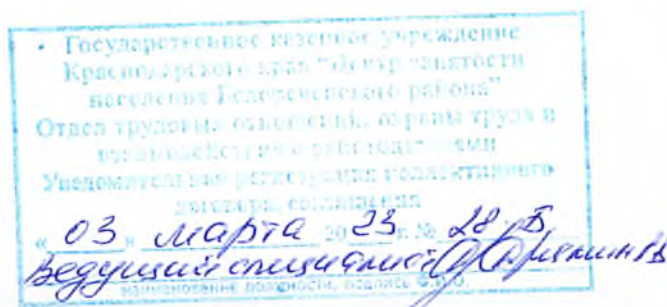 Государственное казенное учреждение
Краснодарского края "Центр занятости
населения Белореченского района"
Отдел трудовых отношений, охраны труда и
взаимодействия с работодателями
Уведомительная регистрация коллективного
договора, соглашения
« 03 » марта 20 23 г. № 28-Б
Ведущий специалист
наименование должности, подпись Ф.И.О.